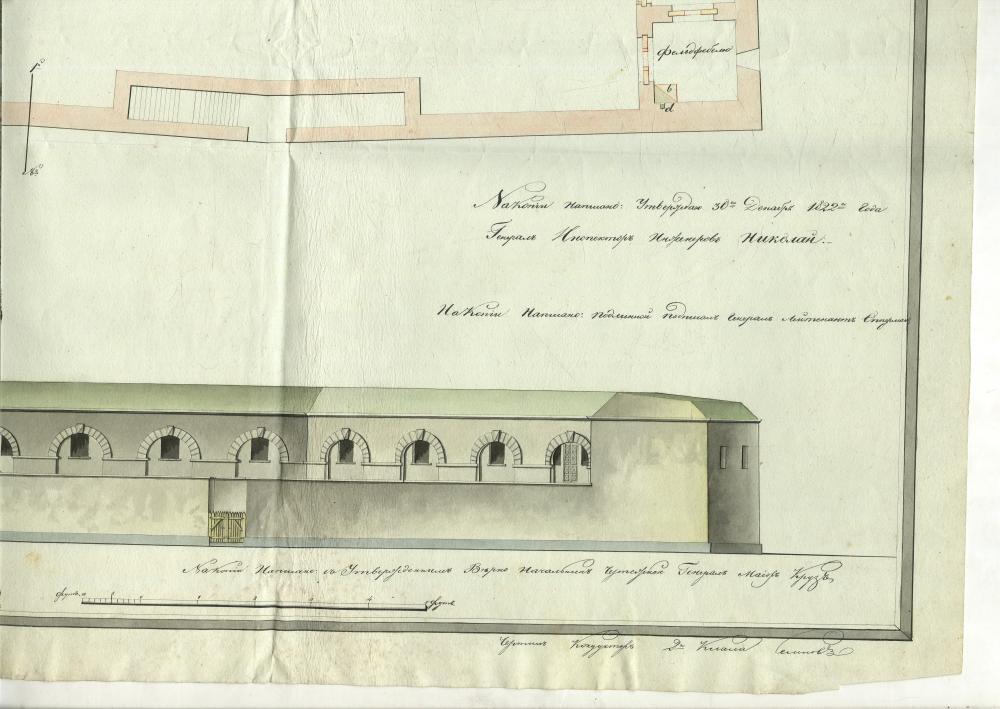 фельдфебелю
b
d
На копіи написано: Утверждаю 30го Декабря 1822го Года
Генералъ Инспекторъ Инженеровъ Николай.
На Копіи Написано: подлинной подписалъ Генералъ Лейтенантъ
На копіи Написано: съ Утвержденнымъ Вѣрно Начальникъ Чертежной Генералъ Маіоръ Крузъ
футъ. 0 1 2 3 4 футъ
Чертилъ Кондукторъ